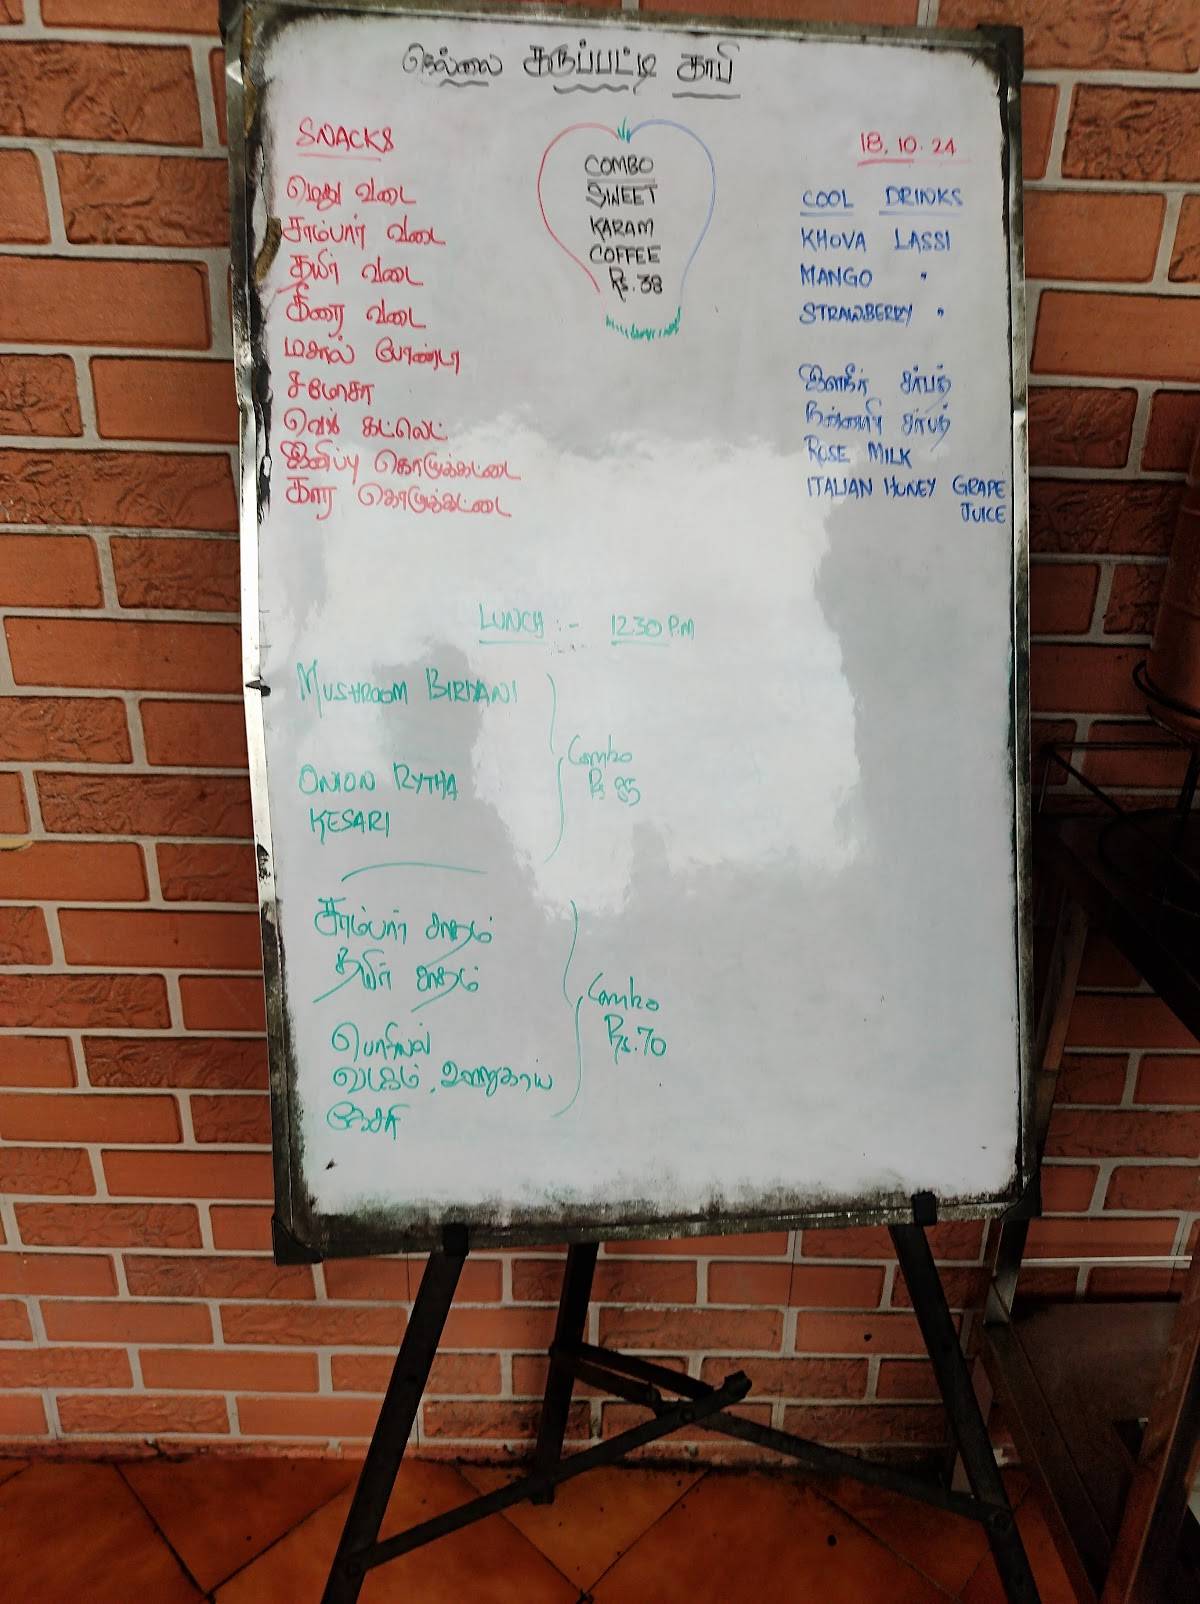 நெல்லை கருப்பட்டி காபி
SNACKS
மெது வடை
சாம்பார் வடை
தயிர் வடை
கீரை வடை
மசால் போண்டா
சமோசா
வெஜ் கட்லெட்
இனிப்பு கொழுக்கட்டை
கார கொழுக்கட்டை
COMBO
SWEET
KARAM
COFFEE
Rs.38
18.10.24
COOL DRINKS
KHOVA LASSI
MANGO "
STRAWBERRY "
இளநீர் சர்பத்
நன்னாரி சர்பத்
ROSE MILK
ITALIAN HONEY GRAPE
JUICE
LUNCH :- 12.30 P.M
MUSHROOM BIRIYANI
ONION RYTHA
KESARI
Combo
Rs
சாம்பார் சாதம்
தயிர் சாதம்
பொரியல்
வடகம், ஊறுகாய்
கேசரி
Combo
Rs.70